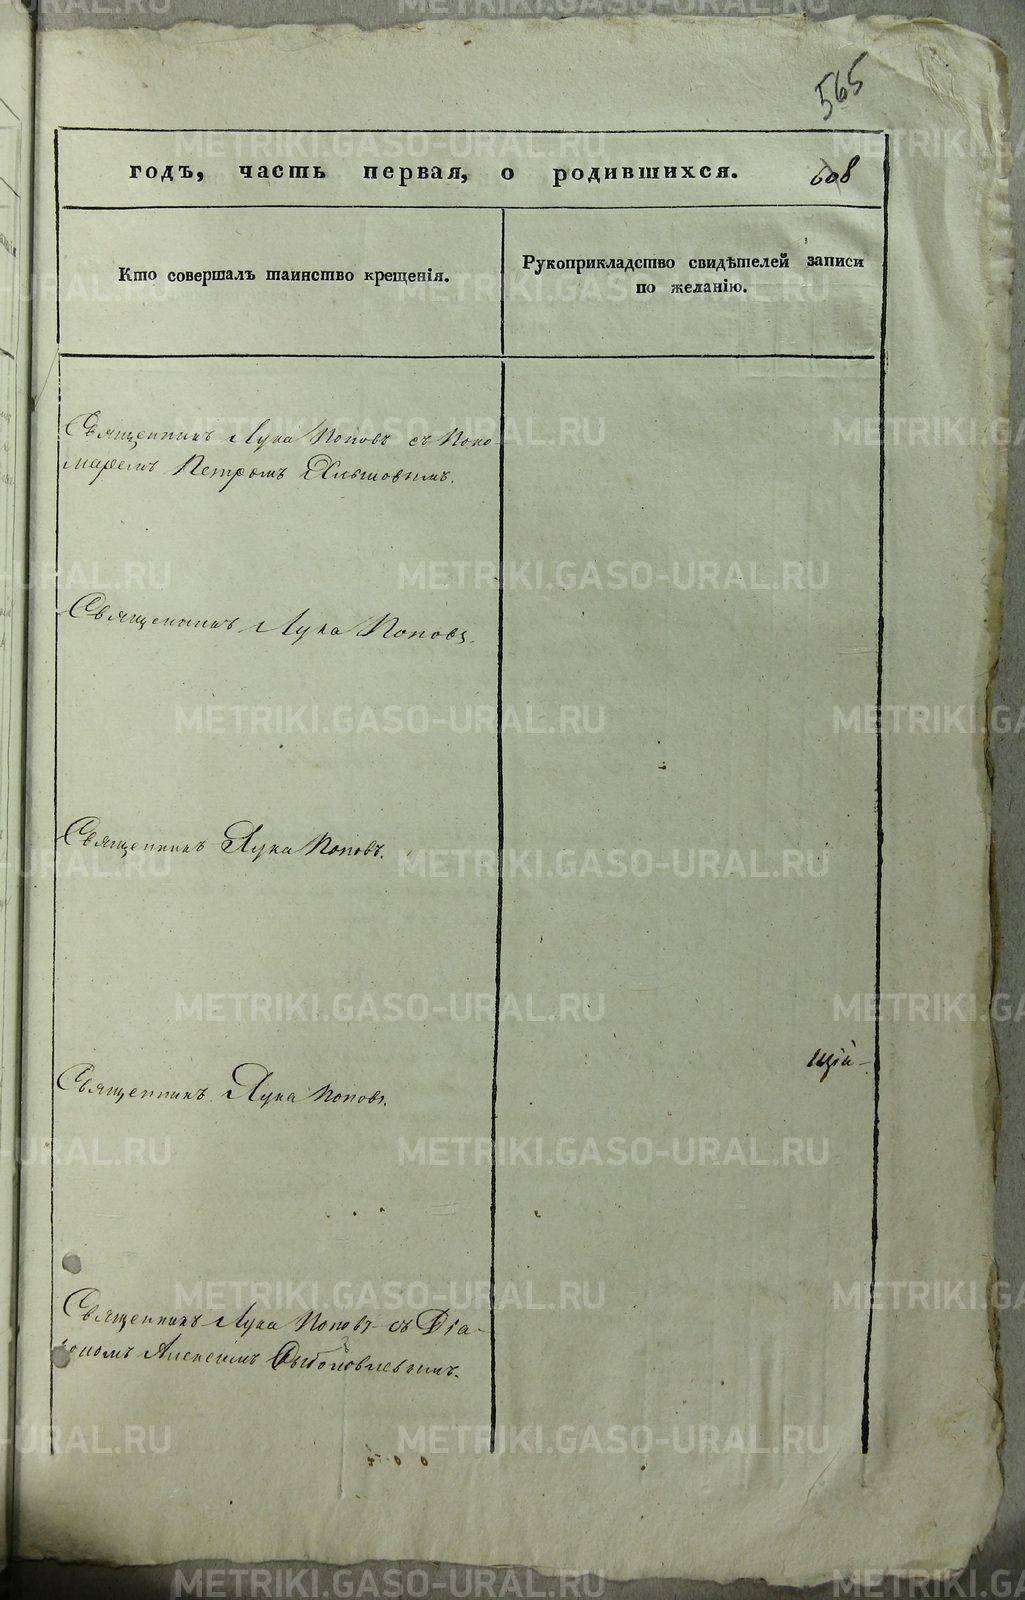 565
годъ, часть первая, о родившихся. 608
Кто совершалъ таинство крещенія.
Рукоприкладство свидѣтелей записи
по желанію.
Священникъ Лука Поповъ съ Поно-
маремъ Петромъ
Священникъ Лука Поповъ.
Священникъ Лука Поповъ.
щій-
Священникъ Лука Поповъ.
Священникъ Лука Поповъ съ Діа-
кономъ Алексіемъ
METRIKI.GASO-URAL.RU